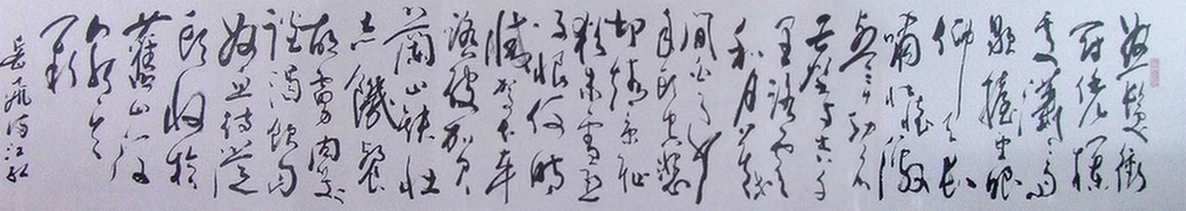 怒髮衝
冠憑欄
處瀟瀟雨
歇擡望眼
仰天長
嘯壯懷激
烈三十功名
塵與土八千
里路雲
和月莫等
閒白了少
年頭空悲
切靖康恥
猶未雪臣
子恨何時
滅駕長車
踏破賀
蘭山缺壯
志饑餐
胡虜肉笑
談渴飲匈
奴血待從
頭收拾
舊山河
朝天
闕
岳飛滿江紅